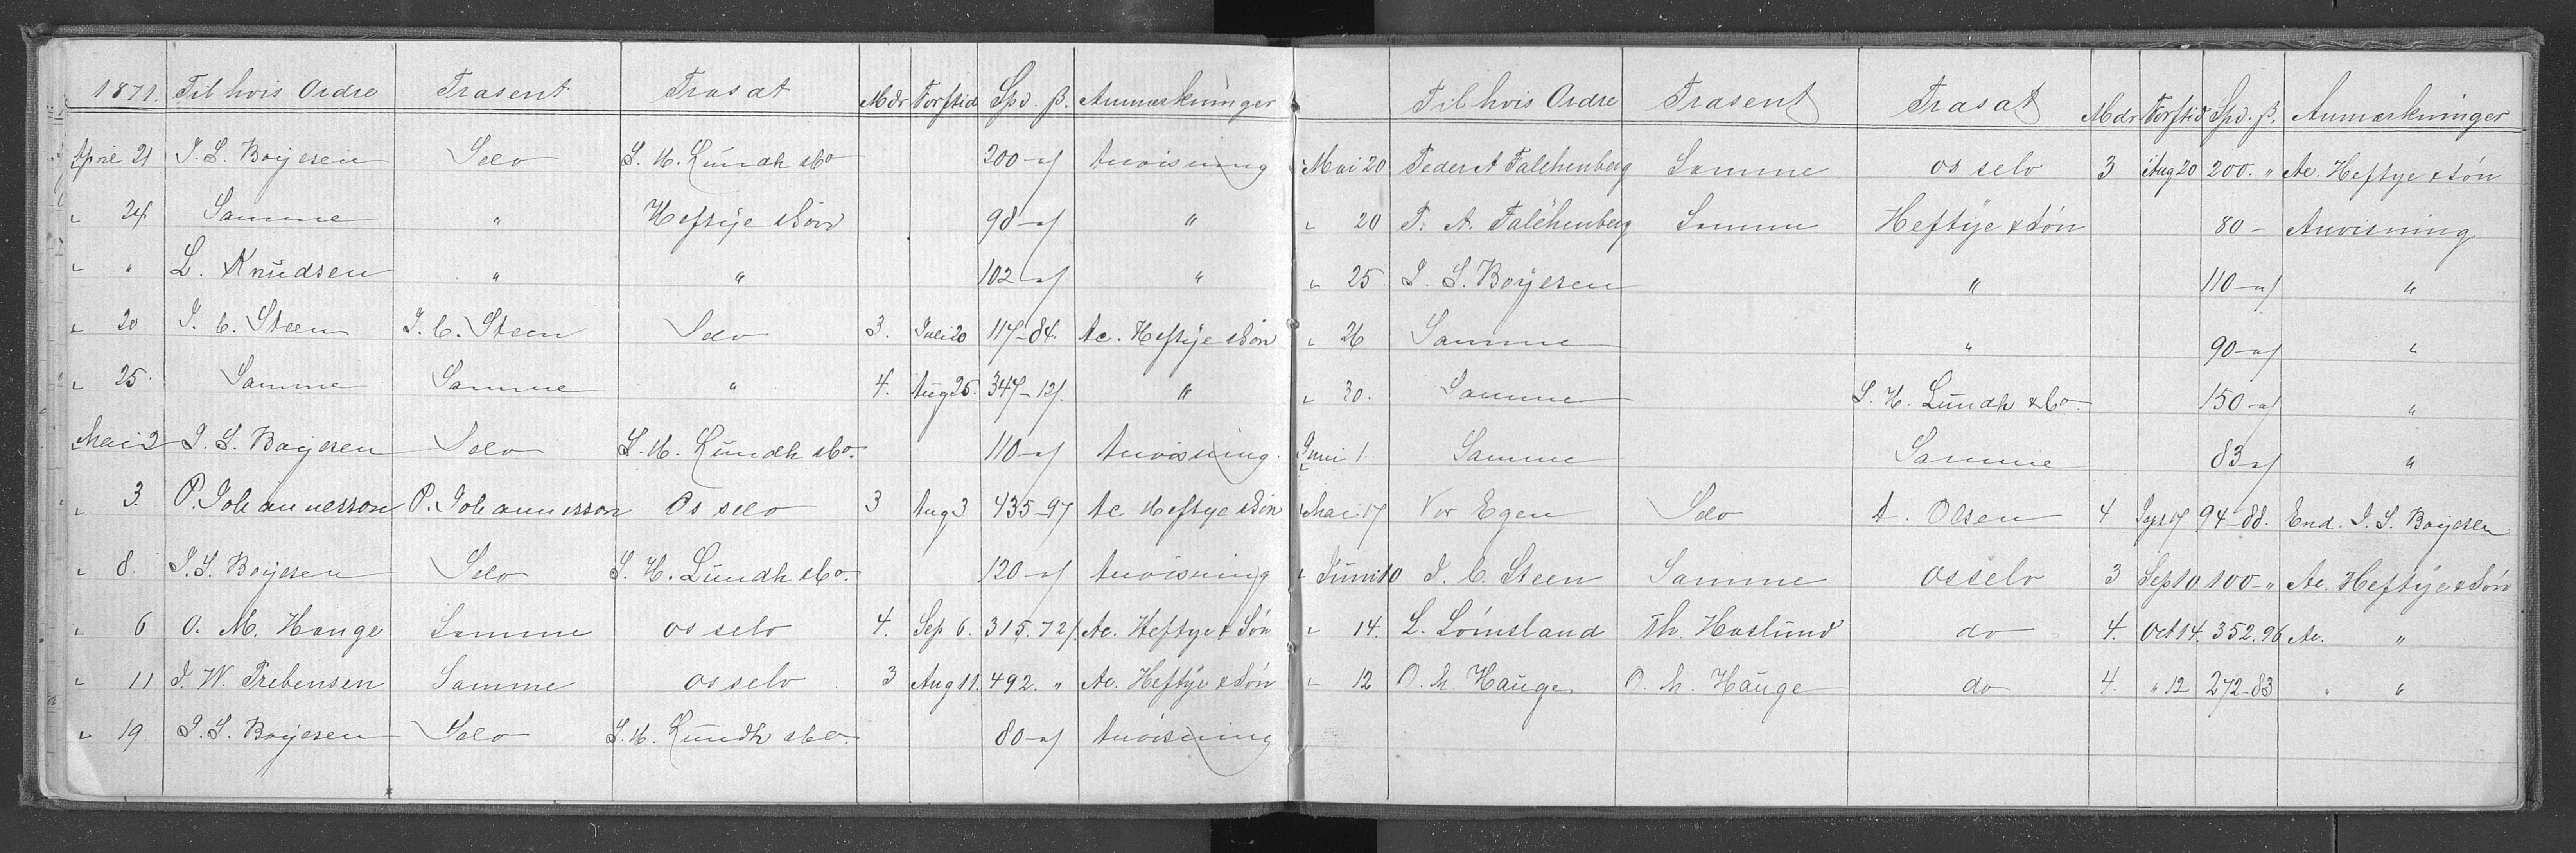 1871. Til hvis Ordre Trasent Trasat Mdr Forftid Spd. ß. Anmærkninger
April 21 J. S. Boyesen Selv S. H. Lundh & Co 200 - " Anvisning
" 24 Samme " Heftye & Søn 98 - " "
" " L. Knudsen " " 102 - " "
" 20 J. C. Steen J. C. Steen Selv 3. Juli 20 117 - 84. Ac. Heftye & Søn
" 25. Samme Samme " 4. Aug 25. 347 - 12. "
Mai 2 J. S. Boyesen Selv S. H. Lundh & Co. 110 - " Anvisning.
" 3. P. Johannesson P. Johannesson Os selv 3 Aug 3 435 - 97 Ac Heftye & Søn
" 8. J. S. Boyesen Selv S. H. Lundh & Co. 120 - " Anvisning
" 6 O. M. Hauge Samme os selv 4. Sep 6. 315. 72. Ac. Heftye & Søn
" 11 J. W. Trebensen Samme os selv 3 Aug 11. 492. " Ac. Heftye & Søn
" 19. J. S. Boyesen Selv S. H. Lundh & Co. 80 - " Anvisning
Til hvis Ordre Trasent Trasat Mdr Forftid Spd. ß. Anmærkninger
Mai 20 Peder A Falchenberg Samme os selv 3 Aug 20 200. " Ac. Heftye & Søn
" 20 P. A. Falchenberg Samme Heftye & Søn 80 - Anvisning
" 25. J. S. Boyesen " 110 - " "
" 26 Samme " 90 - " "
" 30. Samme S. H. Lundh & Co. 150 - " "
Juni 1. Samme Samme 83 - " "
Mai 17 Vor Egen Selv A. Olsen 4 Sept 17 94 - 88. End. J. S. Boyesen
" Juni 10 J. C. Steen Samme os selv 3 Sep 10 100 - " Ac. Heftye & Søn
" 14. L. Lømsland Th. Haslund do 4. Oct 14. 352. 96 Ac. "
" 12 O. M. Hauge O. M. Hauge do 4. " 12 272 - 83 " "